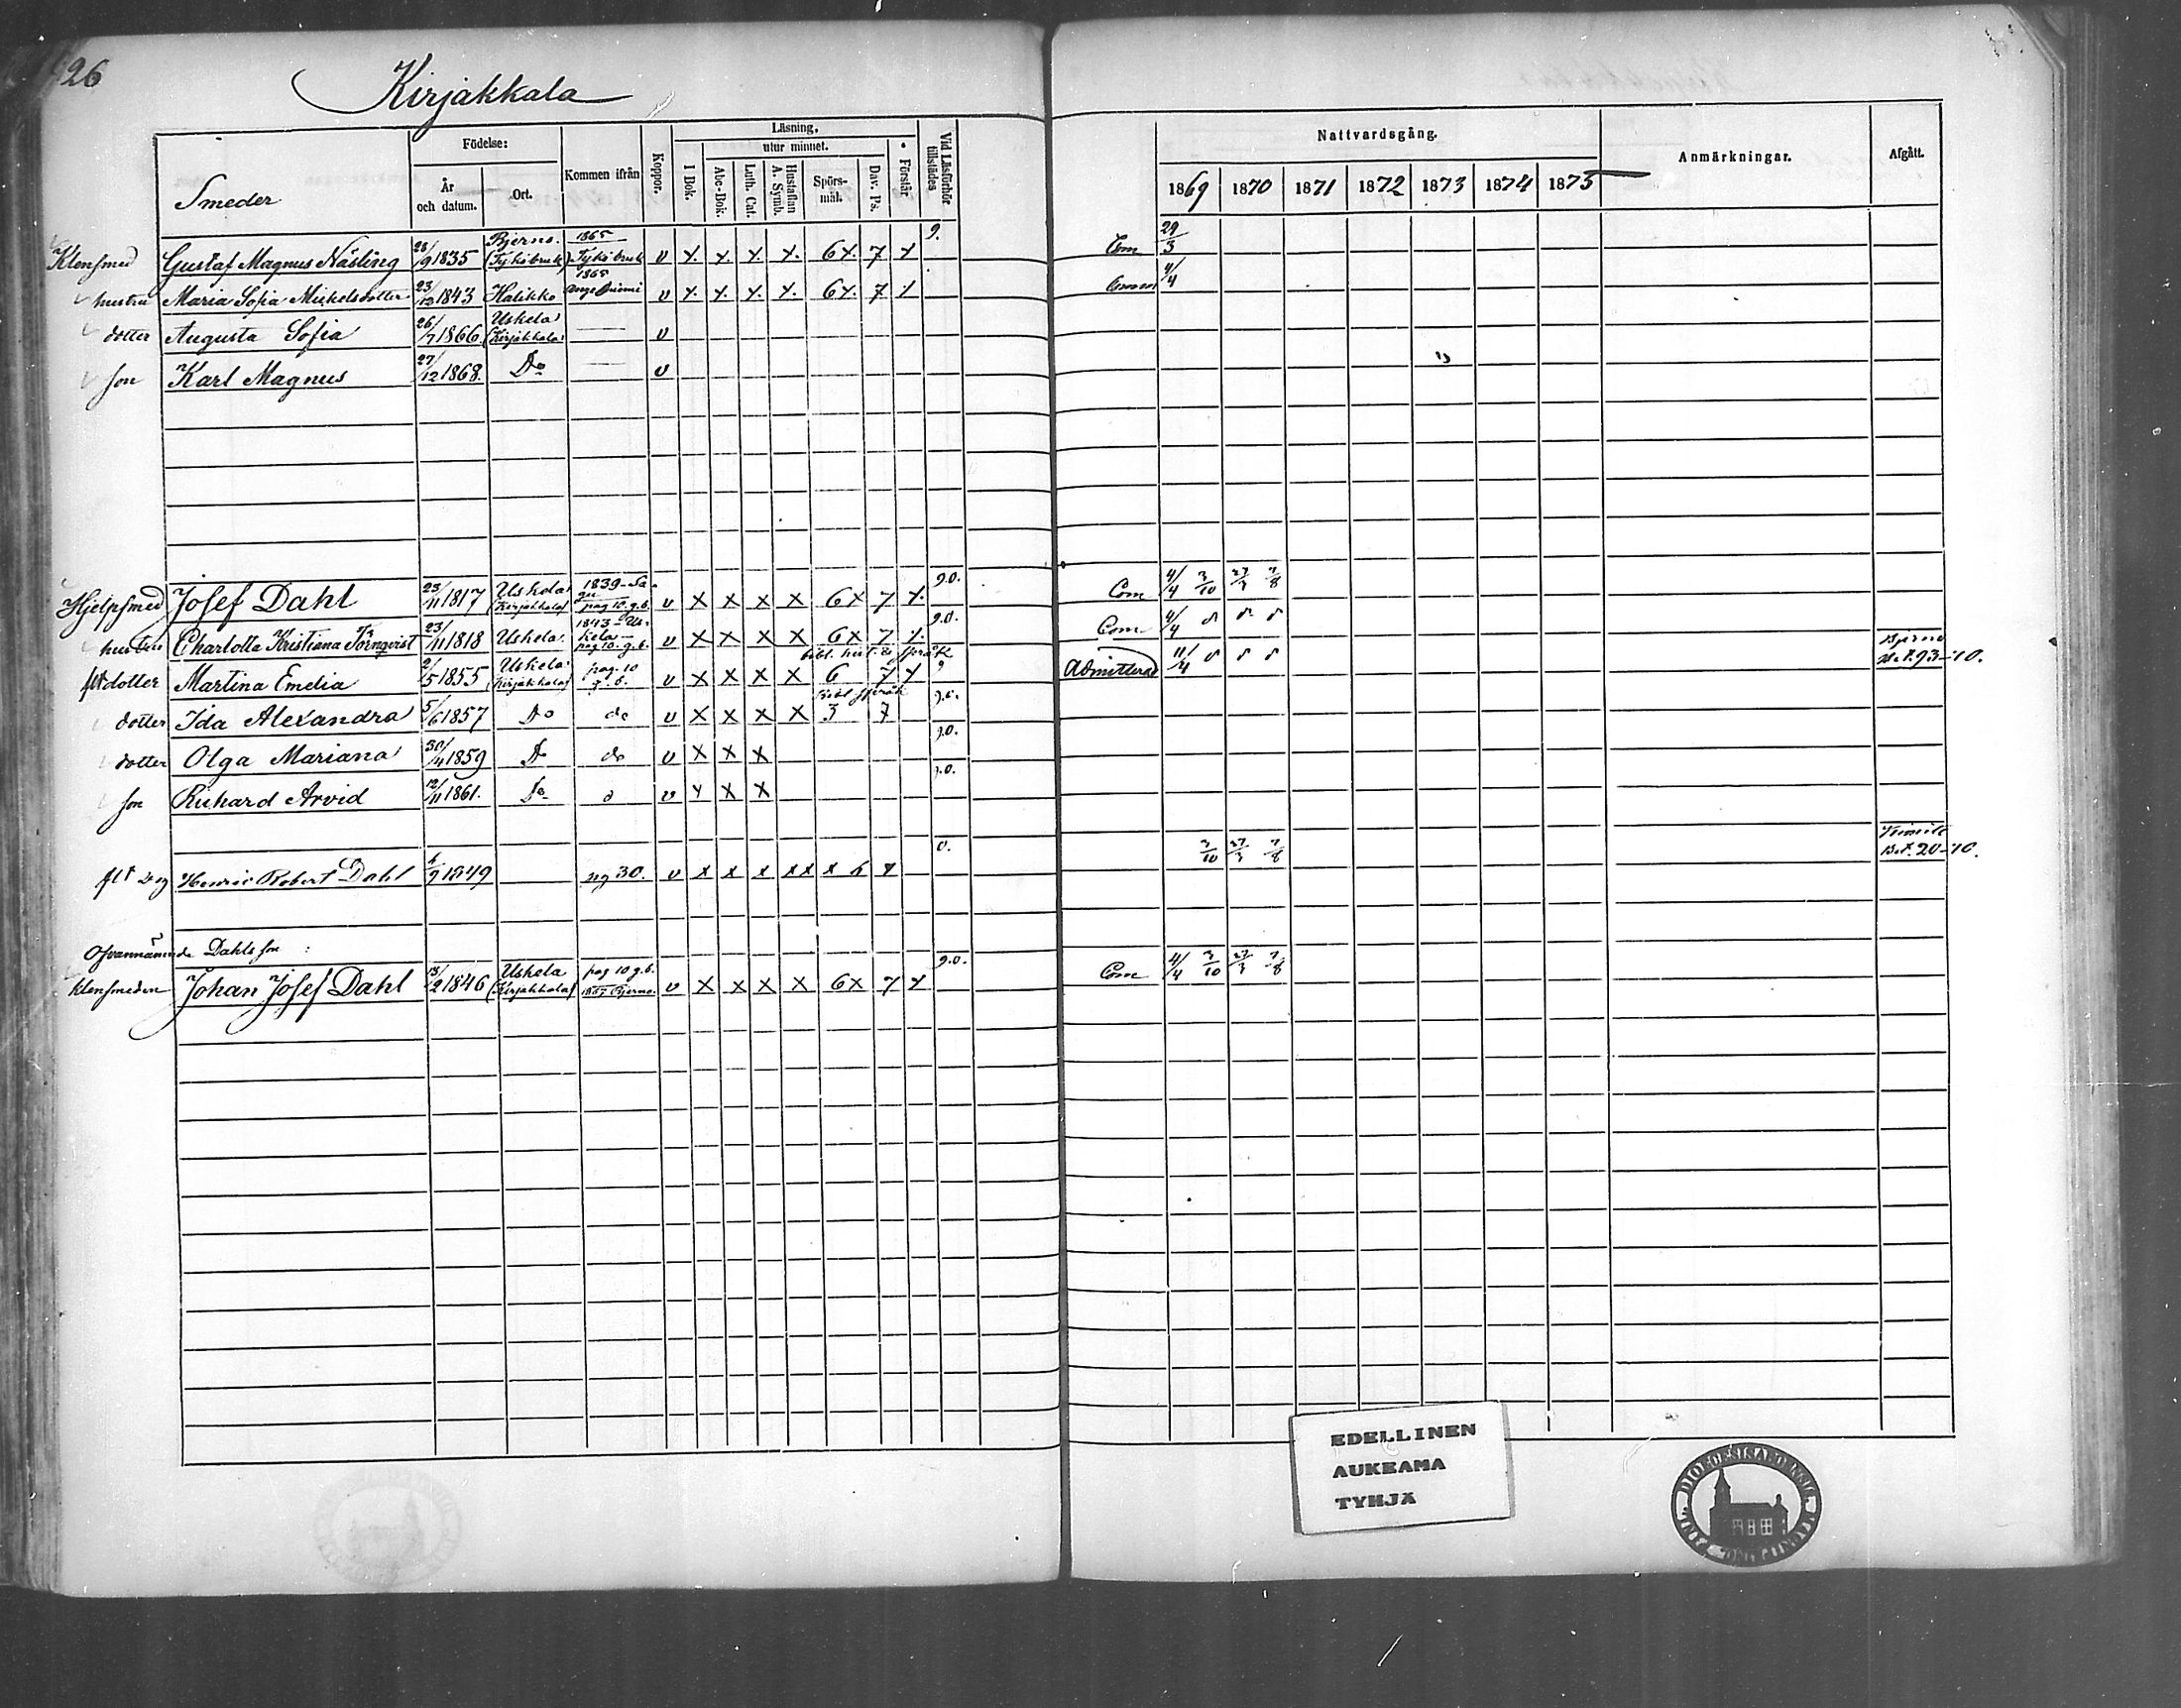 26
Kirjakkala
Smeder
Födelse:
År och datum.
Ort.
Kommen ifrån
Koppor.
Läsning,
utur minnet.
I Bok.
Abc-Bok.
Luth. Cat.
Hustaflan A. Symb.
Spörs-mål.
Dav. Ps.
Förstår
Vid Läsförhör tillstädes
Nattvardsgång.
1869 1870 1871 1872 1873 1874 1875
Anmärkningar.
Afgått.
Klensmed Gustaf Magnus Näsling 28/9 1835 Bjerno. (Tykö bruk) 1865 Tykö bruk v x x x x 6x 7 x 9. Com 29/3
hustru Maria Sofia Mickelsdotter 23/12 1843 Halikko 1865 v x x x x 6x 7 x 4/4
dotter Augusta Sofia 26/7 1866 Uskela (Kirjakkala) v
son Karl Magnus 27/12 1868. Do v
Hjelpsmed Josef Dahl 23/11 1817 Uskela (Kirjakkala) 1839 Sagu pag 10 g.b. v x x x x 6x 7 x 9.0. Com 4/4 3/10 27/3 7/8
hustru Charlotta Kristiana Törnqvist 23/11 1818 Uskela 1843 Uskela pag 10. g.b. v x x x x 6x 7 x 9.0. Com 4/4
dotter Martina Emelia 2/5 1855 Uskela (Kirjakkala) pag. 10 g.b. v x x x x 6 7 x 9 Admitterad 11/4 Bjerno Bet. 93-10.
dotter Ida Alexandra 5/6 1857 Do do v x x x x 3 7 9.0.
dotter Olga Mariana 30/4 1859 Do do v x x x 9.0.
son Richard Arvid 12/11 1861. Do v x x x 9.0.
Henric Robert Dahl 1849 pag 30. v x x x x x x 6 x 0. 3/10 27/3 7/8 Bet. 20-10.
Ofvannämnde Dahls son :
Klensmeden Johan Josef Dahl 13/2 1846 Uskela (Kirjakkala) pag 10 g.b. 1867 Bjerno. v x x x x 6x 7 x 9.0. Com 4/4 3/10 27/3 7/8
EDELLINEN
AUKEAMA
TYHJÄ